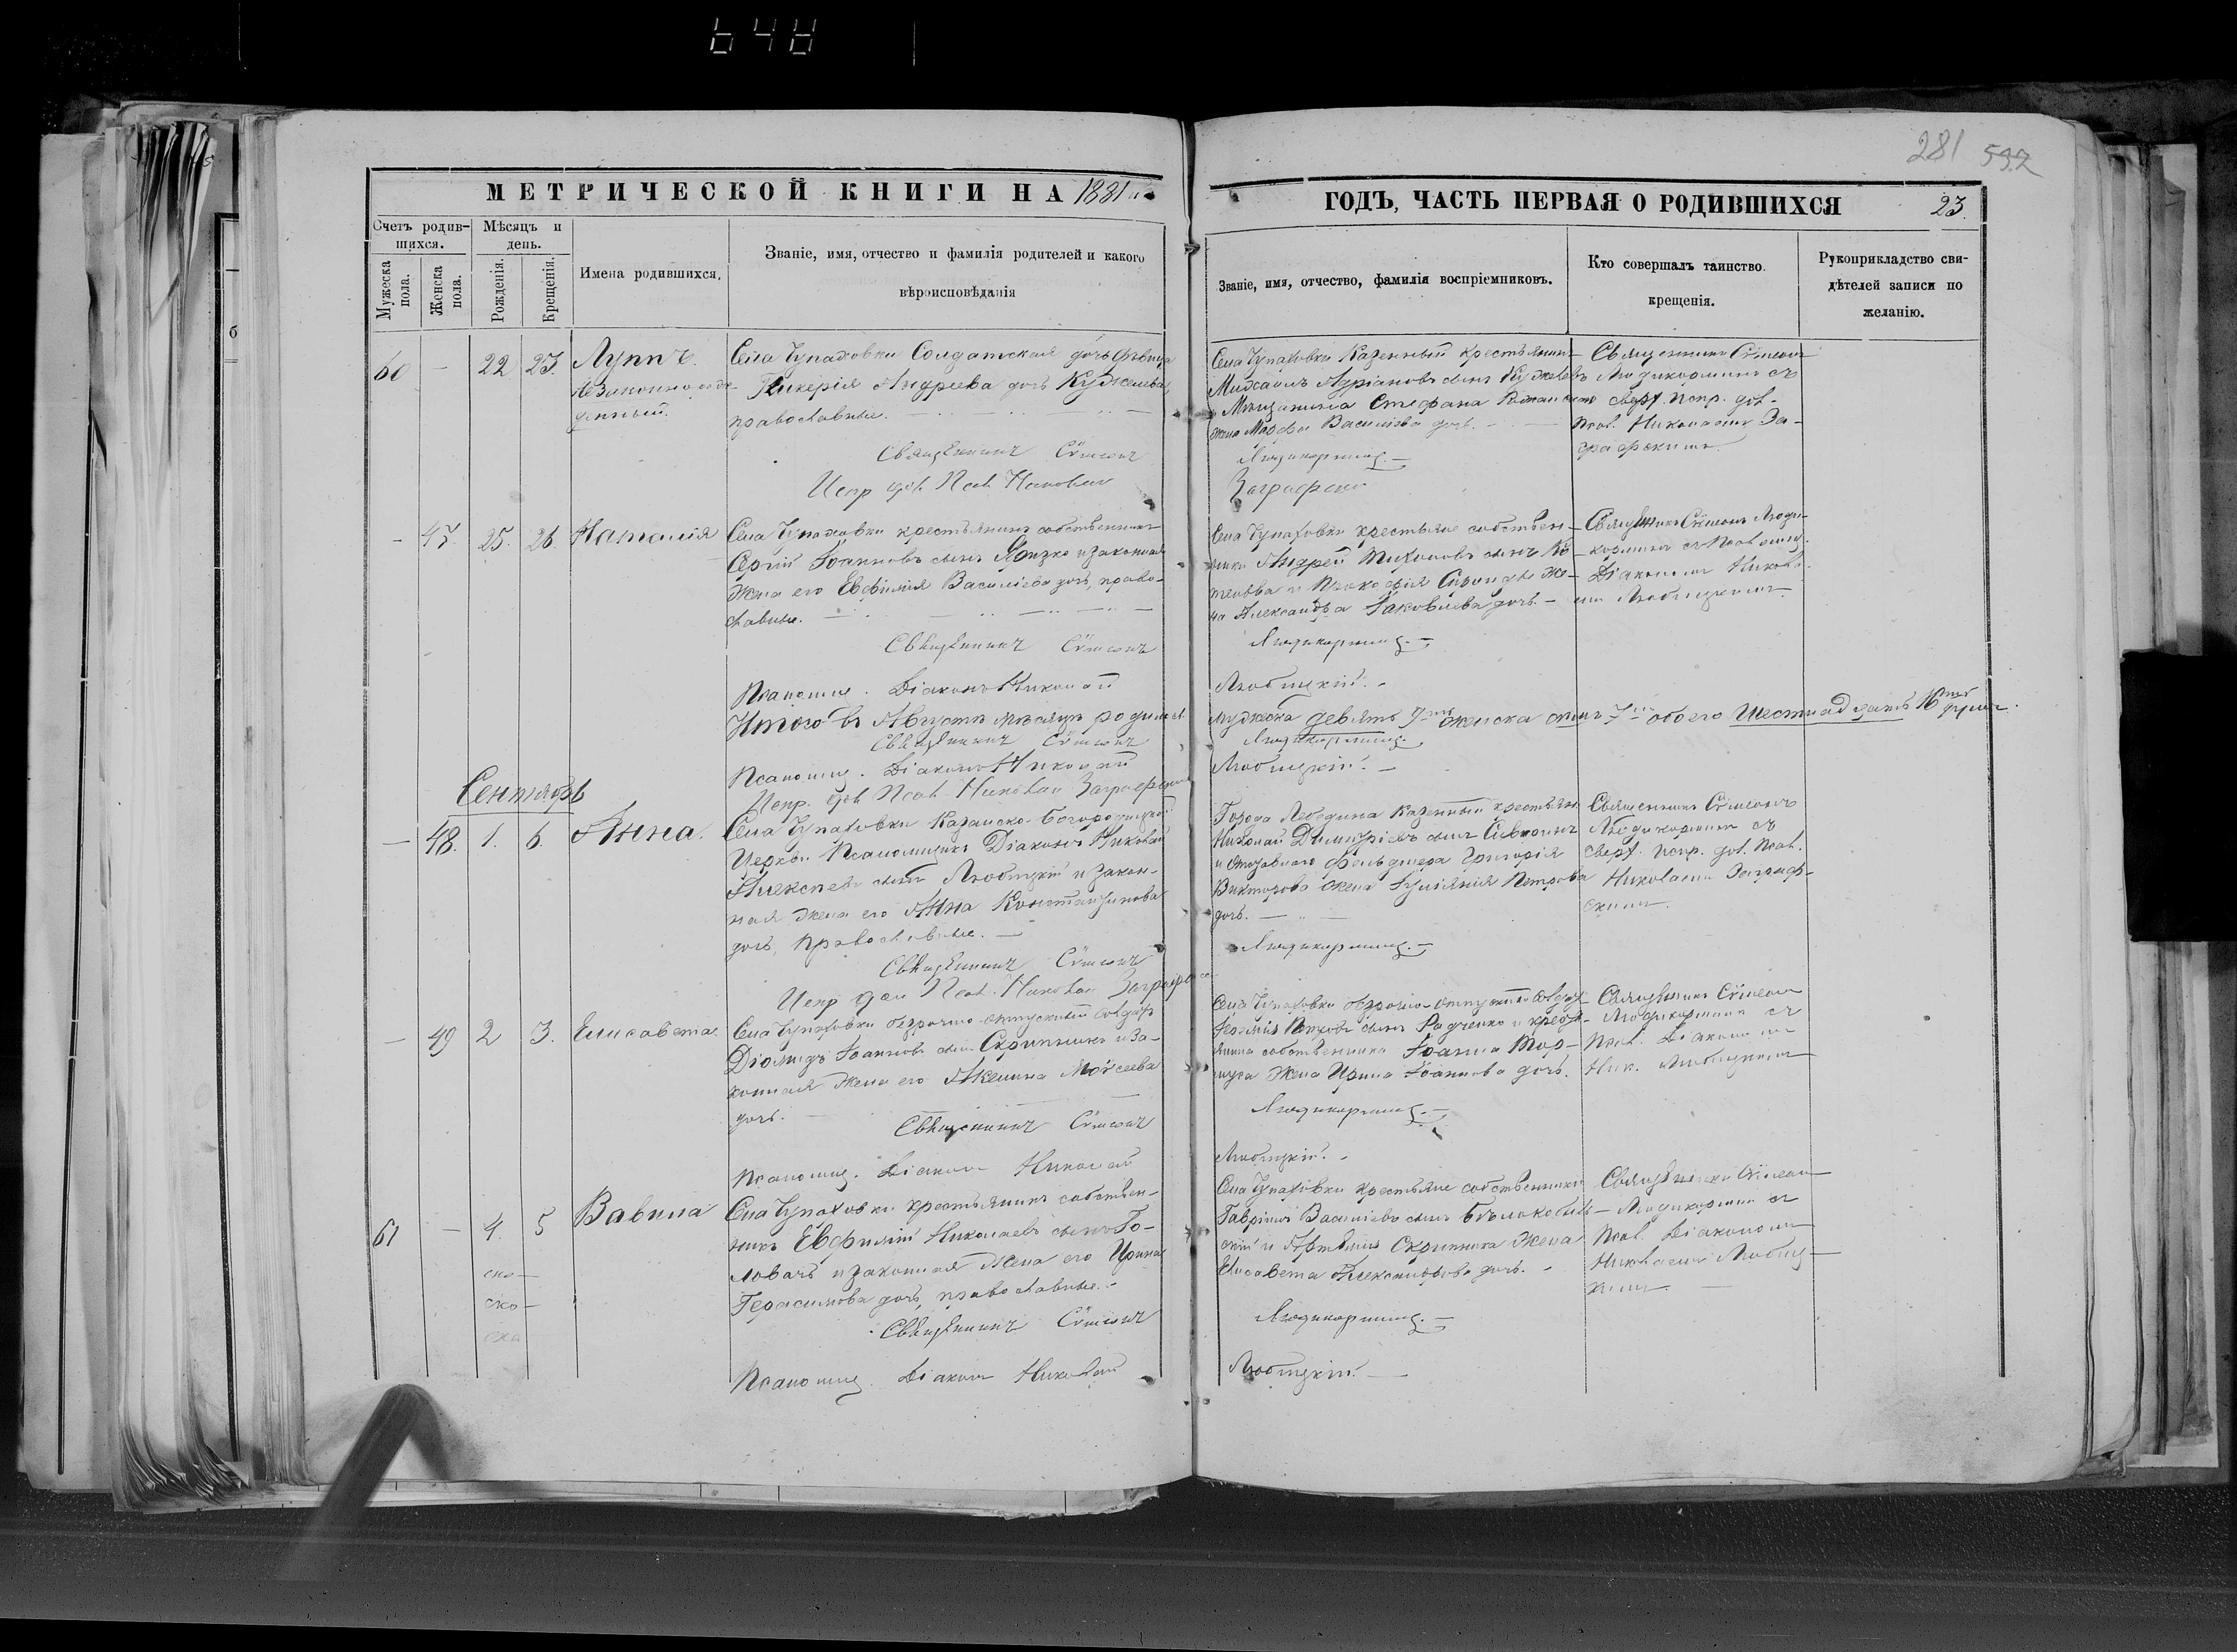 648
281 592
МЕТРИЧЕСКОЙ КНИГИ НА 1881
ГОДЪ, ЧАСТЬ ПЕРВАЯ О РОДИВШИХСЯ 23.
Счетъ родив-
шихся.
Мужеска
пола.
Женска
пола.
Мѣсяцъ и
день.
Рожденія.
Крещенія.
Имена родившихся.
Званіе, имя, отчество и фамилія родителей и какого
вѣроисповѣданія
Званіе, имя, отчество, фамилія воспріемниковъ.
Кто совершалъ таинство
крещенія.
Рукоприкладство сви-
дѣтелей записи по
желанію.
60 - 22 23. Луппъ.
незаконнорож-
денный.
Села Чупаховки Солдатская дочь дѣвица
Гликерія Андреева дочь Куджелева,
православные.
Священникъ Сѵмеонъ
Испр. дол. Псал. Николай
Села Чупаховки Казенный крестьянинъ
Михаилъ Адріановъ сынъ
Мѣщанина Стефана
жена Марфа Васильева дочь.
Людикорминъ.
Заграфскій
Священникъ Сѵмеонъ
Людикорминъ съ
сверх. испр. дол.
Псал. Николаемъ За-
графскимъ.
- 47. 25. 26. Наталія
Села Чупаховки крестьянинъ собственникъ
Сергій Іоанновъ сынъ и законная
жена его Евфимія Васильева дочь, право-
славные.
Священникъ Сѵмеонъ
Псаломщ. Діаконъ Николай
Села Чупаховки крестьяне собствен-
ники Андрей Тихоновъ сынъ
и Прокофія же-
на Александра Іаковлева дочь.
Людикорминъ.
Любицкій.
Священникъ Сѵмеонъ Люди-
корминъ съ Псаломщ.
Діакономъ Никола-
емъ Любицкимъ.
Итого въ Августѣ мѣсяцѣ родилось
мужеска девять 9 женска семь 7 обоего шестнадцать 16
Священникъ Сѵмеонъ
Людикорминъ.
Псаломщ. Діаконъ Николай
Любицкій.
Испр. дол. Псал. Николай Заграфскій
Сентябрь
- 48. 1. 6. Анна.
Села Чупаховки Казанско-Богородицкой
Церкви Псаломщикъ Діаконъ Николай
Алексѣевъ сынъ Любицкій и закон-
ная жена его Анна Константинова
дочь, православные.
Священникъ Сѵмеонъ
Испр. дол. Псал. Николай Заграфскій
Города Лебедина Казенный крестьян.
Николай Димитріевъ сынъ
и отставного фельдшера Григорія
Викторова жена Іуліанія Петрова
дочь.
Людикорминъ.
Священникъ Сѵмеонъ
Людикорминъ съ
сверх. испр. дол. Псал.
Николаемъ Заграф-
скимъ.
- 49 2 3. Елисавета.
Села Чупаховки безсрочно-отпускный солдатъ
Діомидъ Іоанновъ сынъ Скрипникъ и за-
конная жена его Акелина Моѵсеева
дочь.
Священникъ Сѵмеонъ
Псаломщ. Діаконъ Николай
Села Чупаховки безсрочно-отпускный солдат.
Петровъ сынъ Радченко и крест-
янина собственника Іоанна
жена Ирина Іоаннова дочь.
Людикорминъ.
Любицкій.
Священникъ Сѵмеонъ
Людикорминъ съ
Псал. Діакономъ
Ник. Любицкимъ
61 - 4. 5 Вавила
Села Чупаховки крестьянинъ собствен-
никъ Евфимій Николаевъ сынъ Го-
ловачъ и законная жена его Ирина
Герасимова дочь, православные.
Священникъ Сѵмеонъ
Псаломщ. Діаконъ Николай
Села Чупаховки крестьяне собственники
Гавріилъ Васильевъ сынъ
и Артемія Скрипника жена
Елисавета Александрова дочь.
Людикорминъ.
Любицкій.
Священникъ Сѵмеонъ
Людикорминъ съ
Псал. Діакономъ
Николаемъ Любиц-
кимъ.